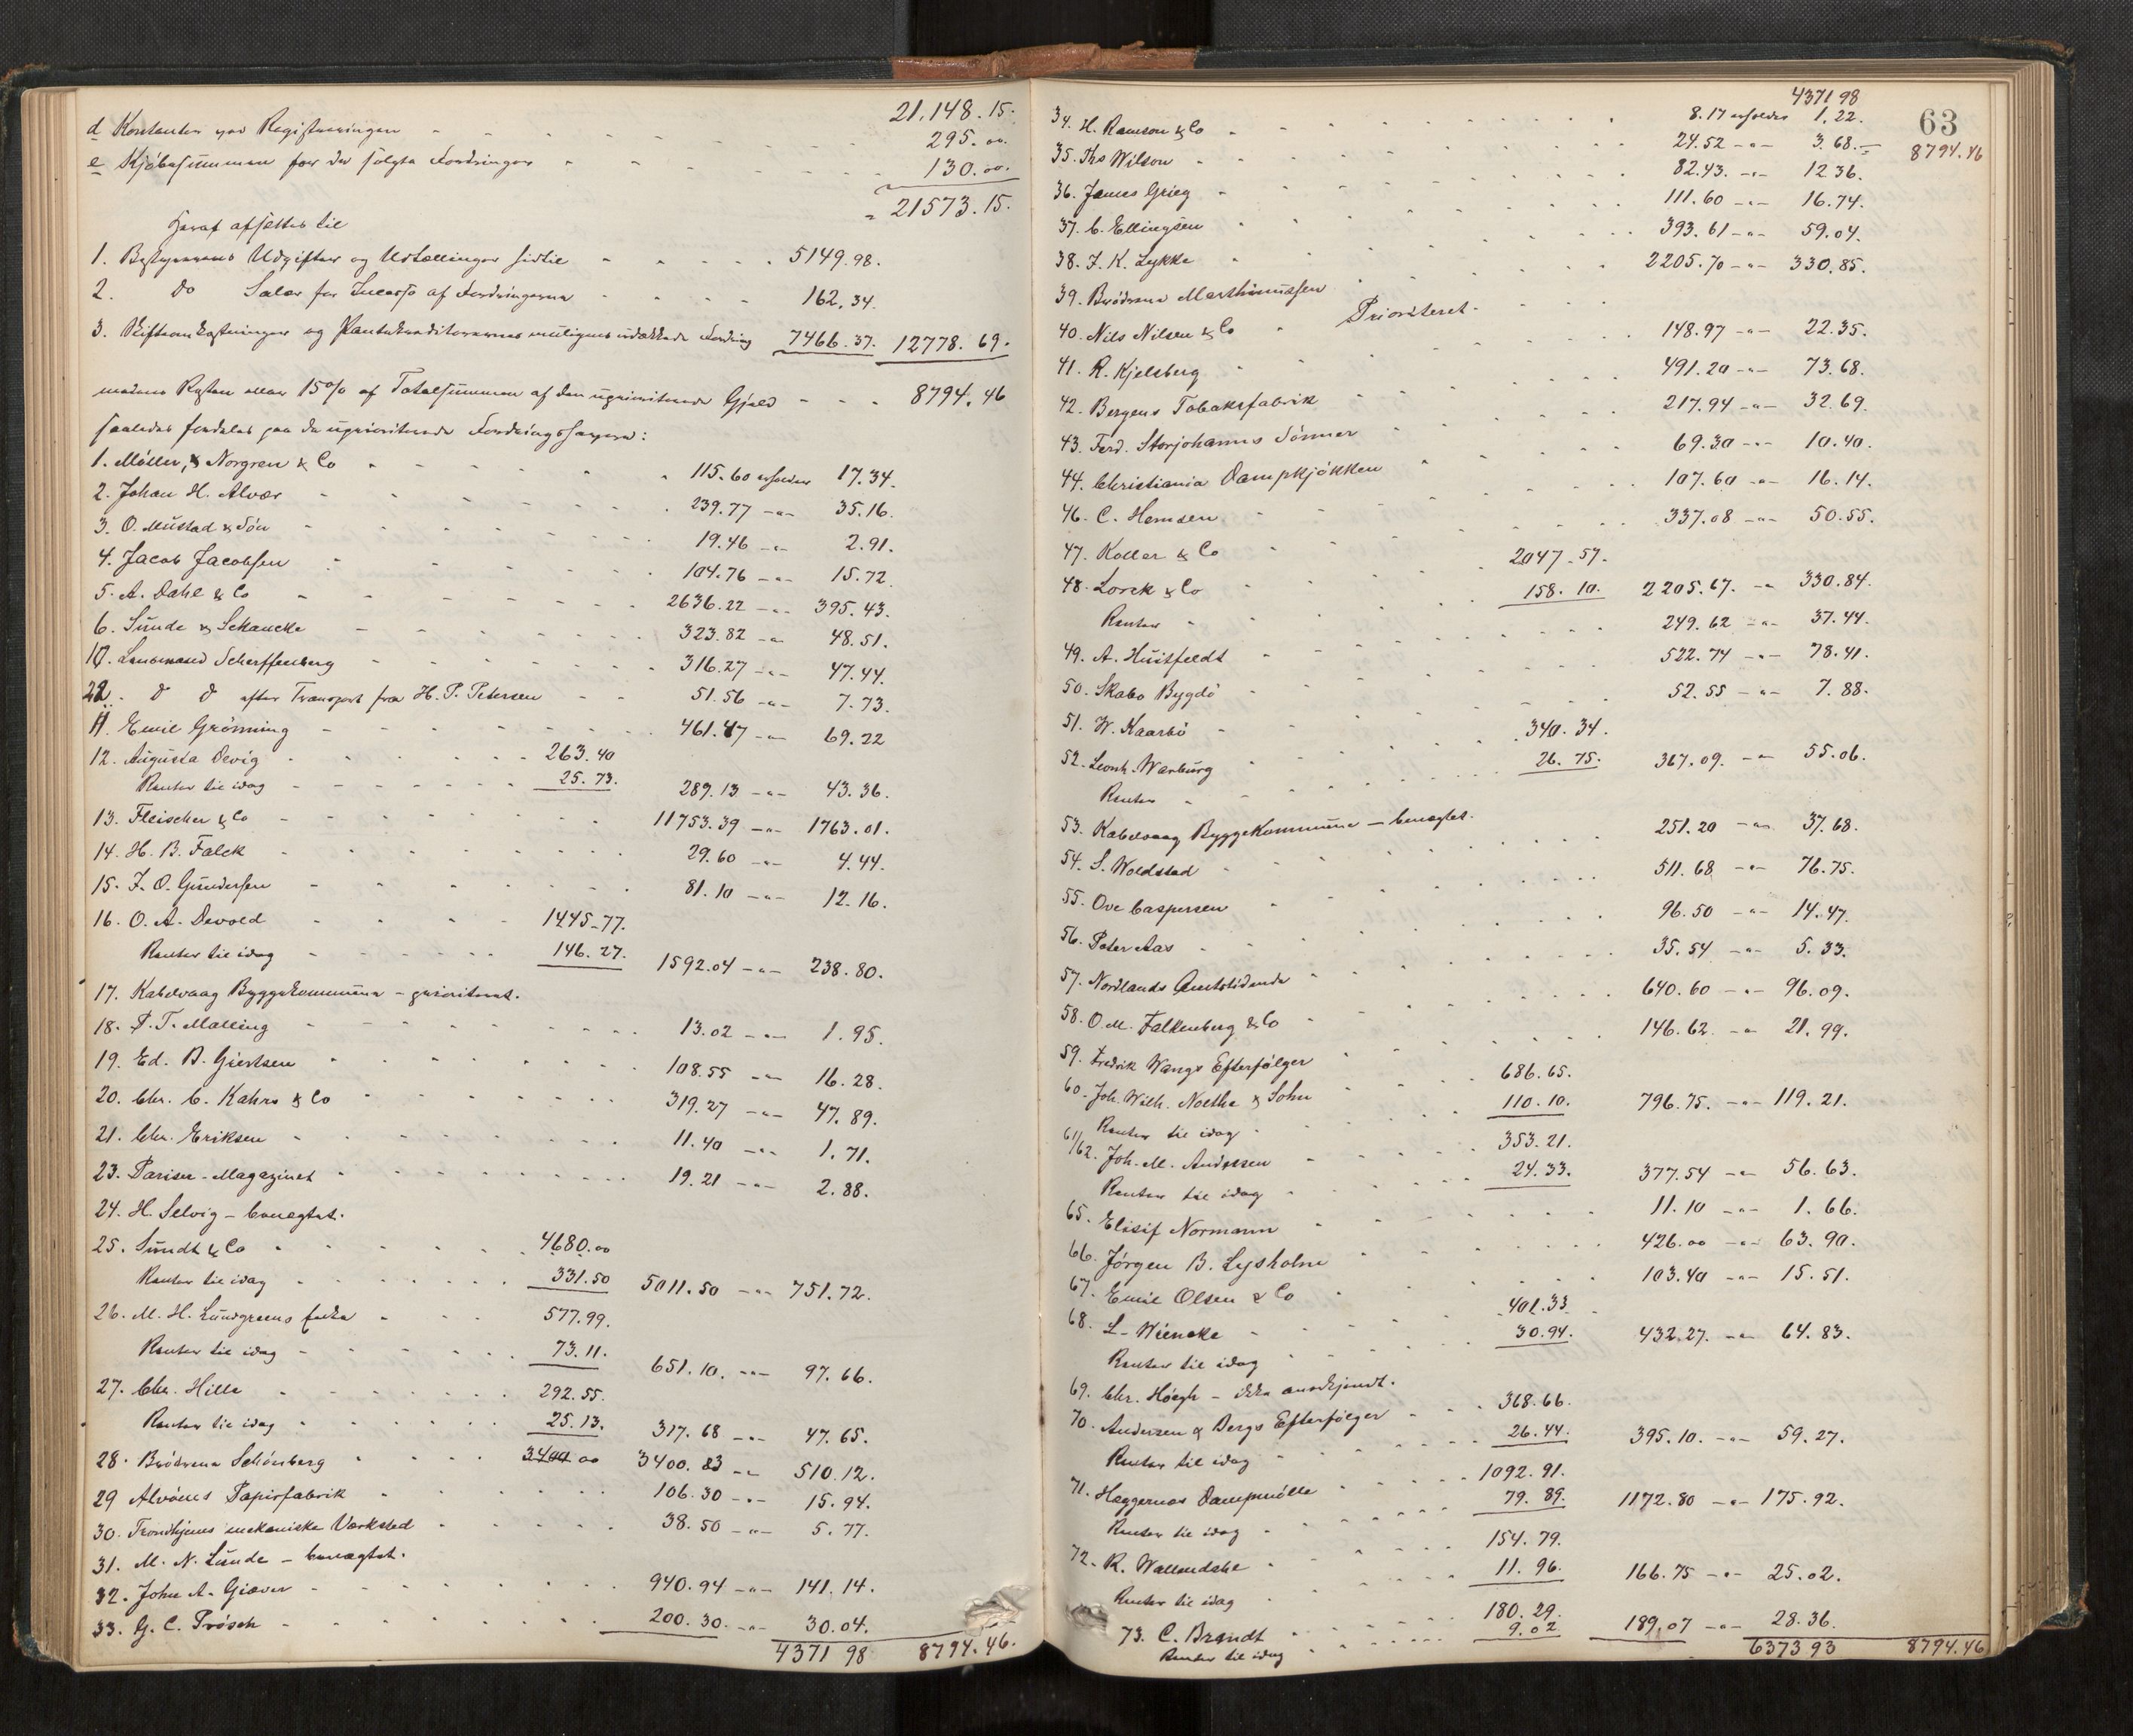 21,148.15.
d Kontanter ved Registreringen - - - 295.00.
e Kjöbesummen for de solgte Fordringer - - - 130.00.
= 21573.15.
Heraf afsættes til
1. Bestyrerens Udgifter og Udtællinger hidtil - - - 5149.98.
2. Do Salær for Incasso af Fordringerne - - - 162,34.
3. Skifteomkostninger og Pantekreditorernes muligens udækkede Fordring 7466.37. 12778.69.
medens Resten eller 15% af Totalsummen af den uprioriterede Gjæld - - - 8794.46
saaledes fordeles paa de uprioriterede Fordringshavere:
1. Möller, Norgren & Co - - - 115.60 erholder 17.34.
2. Johan H. Alvær - - - 239.77 -"- 35.16.
3. O. Mustad & Sön - - - 19.46 -"- 2.91.
4. Jacob Jacobsen - - - 104.76 -"- 15.72.
5. A. Dahl & Co - - - 2636.22 -"- 395.43.
6. Sunde & Schancke - - - 323.82 -"- 48.51.
10. Lensmand Scharffenberg - - - 316.27 -"- 47.44.
22. do do efter Transport fra H. P. Petersen - - 51.56 -"- 7.73.
11. Emil Grönning - - - 461.47 -"- 69.22
12. Augusta Devig - - - 263.40
Renter til idag - - - 25.73. 289.13 -"- 43.36.
13. Fleischer & Co - - - 11753.39 -"- 1763.01.
14. H. B. Falck - - - 29.60 -"- 4.44.
15. J. O. Gundersen - - - 81.10 -"- 12.16.
16. O. A. Devold - - - 1445.77.
Renter til idag - - - 146.27. 1592.04 -"- 238.80.
17. Kabelvaag Byggekommune - prioriteret.
18. P. T. Malling - - - 13.02 -"- 1.95.
19. Ed. B. Giertsen - - - 108.55 -"- 16.28.
20. Chr. C. Kahrs & Co - - - 319.27 -"- 47.89.
21. Chr. Eriksen - - - 11.40 -"- 1.71.
23. Pariser-Magazinet - - - 19.21 -"- 2.88.
24. H. Selvig - benegtet.
25. Sundt & Co - - - 4680.00
Renter til idag - - - 331.50 5011.50 -"- 751.72.
26. M. H. Lundgreens Enke - - 577.99.
Renter til idag - - - 73.11. 651.10. -"- 97.66.
27. Chr. Hille - - - 292.55.
Renter til idag - - - 25.13. 317.68 -"- 47.65.
28. Brödrene Schönberg - - - 3400 00 3400.83 -"- 510.12.
29 Alvöens Papirfabrik - - - 106.30 -"- 15.94.
30. Trondhjems mekaniske Værksted - - - 38.50 -"- 5.77.
31. M. N. Lunde - benægtet.
32. John A. Giæver - - - 940.94 -"- 141.14.
33. G. C. Prösch - - - 200.30. -"- 30.04.
4371 98 8794.46.
4371 98
63
8794.46
34. H. Ramson & Co - - - 8.17 erholder 1,22.
35. Ths Wilson - - - 24.52 -"- 3.68.
36. James Grieg - - - 82.43. -"- 12 36.
37. C. Ellingsen - - - 111.60 -"- 16.74.
38. J. K. Lykke - - - 393.61 -"- 59.04.
39. Brödrene Marthinussen - - - 2205.70 -"- 330.85.
40. Nils Nilsen & Co - Prioriteret.
41. R. Kjelsberg - - - 148.97 -"- 22.35.
42. Bergens Tobaksfabrik - - - 491.20 -"- 73.68.
43. Ferd. Storjohanns Sönner - - - 217.94 -"- 32.69.
44. Christiania Dampkjökken - - - 69.30 -"- 10.40.
46. C. Hemsen - - - 107.60 -"- 16.14.
47. Koller & Co - - - 337.08 -"- 50.55.
48. Lorck & Co - - - 2047.57.
Renter - - - 158.10. 2205.67. -"- 330.84.
49. A. Huitfeldt - - - 249.62 -"- 37.44.
50. Skabo Bygdö - - - 522.74 -"- 78.41.
51. W. Kaarbö - - - 52.55 -"- 7.88.
52. Leonh. Warburg - - - 340.34.
Renter - - - 26.75. 367.09. -"- 55.06.
53. Kabelvaag Byggekommune - benægtet.
54. S. Woldstad - - - 251.20 -"- 37.68.
55. Ove Caspersen - - - 511.68 -"- 76.75.
56. Peter Aas - - - 96.50 -"- 14.47.
57. Nordlands Amtstidende - - - 35.54 -"- 5.33.
58. O. M. Falkenberg & Co - - - 640.60 -"- 96.09.
59. Fredrik Wangs Efterfölger - - - 146.62 -"- 21.99.
60. Joh. Wilh. Nolthe & Sohn - - - 686.65.
Renter til idag - - - 110.10. 796.75. -"- 119.21.
61/62. Joh. M. Andresen - - - 353.21.
Renter til idag - - - 24.33. 377.54 -"- 56.63.
65. Elisif Normann - - - 11.10 -"- 1.66.
66. Jörgen B. Lysholm - - - 426.00 -"- 63.90.
67. Emil Olsen & Co - - - 103.40 -"- 15.51.
68. L. Wiencke - - - 401.33
Renter til idag - - - 30.94. 432.27. -"- 64.83.
69. Chr. Höegh - ikke anerkjendt.
70. Andersen & Bergs Efterfölger - - - 368.66.
Renter til idag - - - 26.44. 395.10. -"- 59.27.
71. Heggernes Dampmölle - - - 1092.91.
Renter til idag - - - 79.89. 1172.80 -"- 175.92.
72. R. Wallendahl - - - 154.79.
Renter til idag - - - 11.96. 166.75 -"- 25.02.
73. C. Brandt - - - 180.29.
Renter til idag - - - 9.02 189.07 -"- 28.36.
6373 93 8794.46